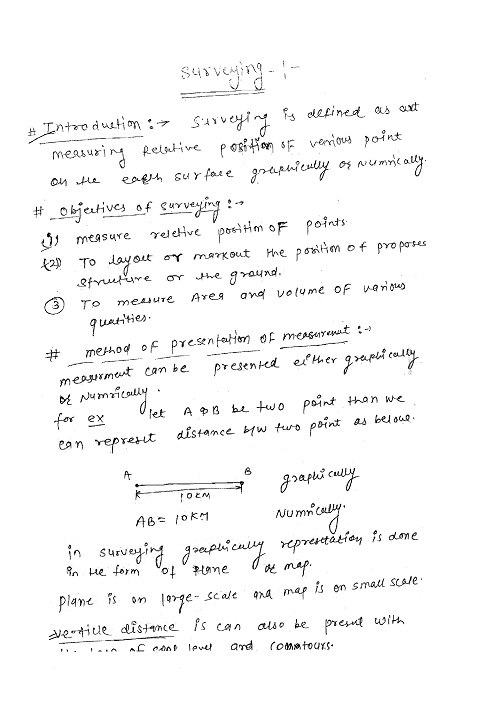 Surveying -:-
# Introduction :→ Surveying is defined as art
measuring Relative position of verious point
on the earth surface graphically or Numrically.
# objectives of surveying :→
(1) measure reletive position of points.
(2) To layout or markout the position of proposes
structure or the ground.
(3) To measure Area and volume of various
quatities.
# method of presentation of measurement :→
measurment can be presented either graphically
or Numrically.
for ex let A & B be two point than we
can represett distance b/w two point as below.
A B graphically
10KM
AB = 10KM Numrically.
in surveying graphically represtation is done
in the form of plane or map.
plane is on large-scale and map is on small scale.
verticle distance is can also be present with
of level and conntours.